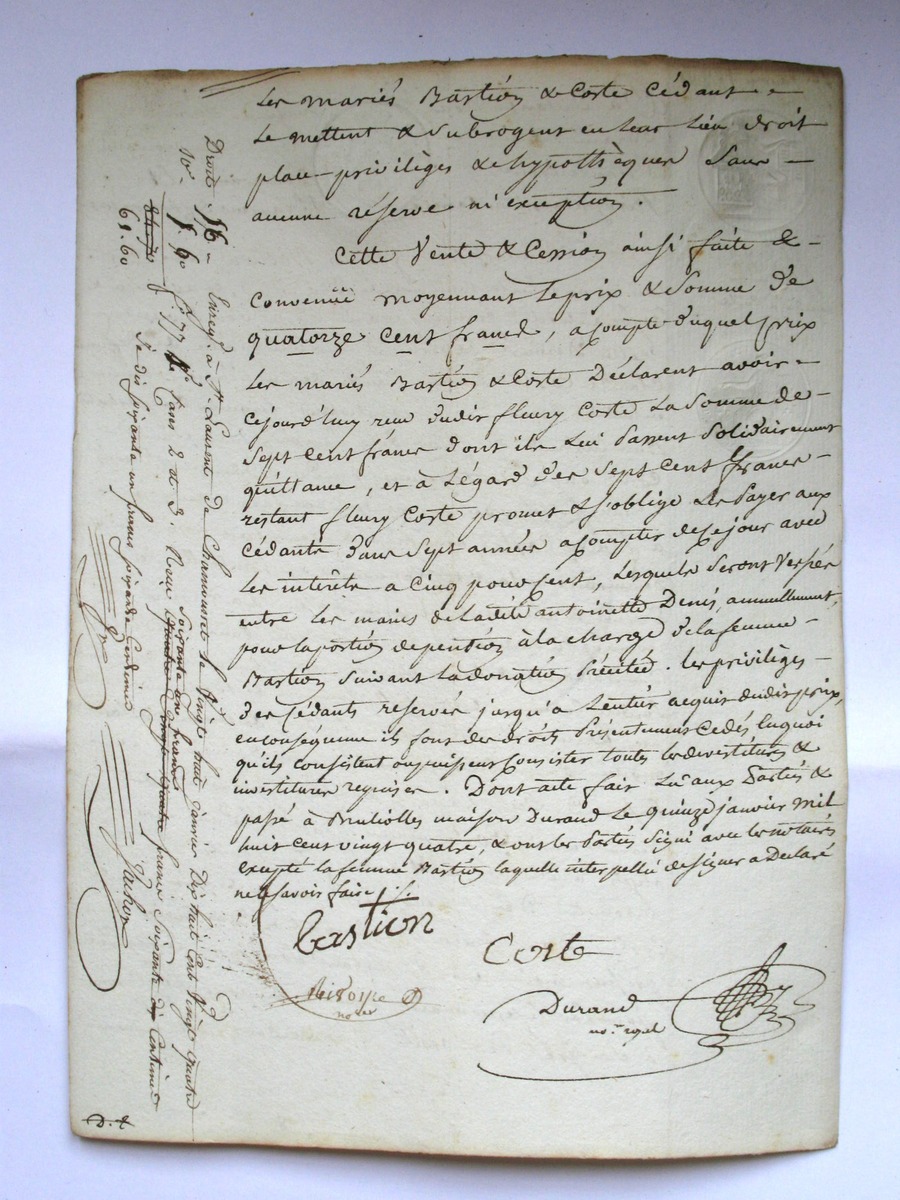 Les mariés Bastion & Coste Cédant =
Le mettent & Subrogent en leur Lieu droit
place privilèges & hypothèques Sans —
aucune réserve ni exception.
Cette Vente & Cession ainsi faite & —
Convenuë moyennant le prix & Somme de
quatorze cent francs, acompte duquel prix
Les mariés Bastion & Coste Déclarent avoir =
Cejourd'huy reçu dudit fleury Coste La Somme de =
Sept Cent francs dont ils Lui Passent Solidairement
quittance, et à Légard des Sept Cent francs =
restant fleury Coste promet & s'oblige Les Payer aux
Cédants dans Sept années acompter de ce jour avec
Les intérêts a Cinq pour cent, Lesquels Seront Versés
entre Les mains de Ladite antoinette Denis, annuellement,
pour la portion de pention à la charge de la femme —
Bastion Suivant la donation Précitée. Les privilèges —
des Cédants reservés jusqu'a Lentier acquit dudit prix,
en conséquence ils font des droits Présentement Cedés, en quoi
qu'ils consistent ou puissent Consister toutes les devestitures &
investitures requises. Dont acte fait Lû aux Parties &
passé à Brullioles maison Durand Le quinze janvier mil
huit cent vingt quatre, & ont les Parties Signé avec les notaires
excepté la femme Bastion laquelle interpellée de Signer a Déclaré
ne le Savoir faire ./.
bastion
Coste
Durand
no.re royal
notre
Droits 56 —
10e 5.60
61.60
Enreg. à St Laurent de Chamousset le Vingt huit janvier Dix huit Cent Vingt quatre
f. 77 Cases 2 et 3. Reçu quatre Vingt quatre francs Soixante dix Centimes
Soixante un francs
Je dis Soixante un francs Soixante Centimes